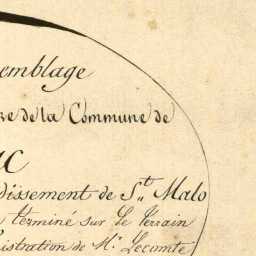 semblage
re de la Commune de
ac
dissement de S.t Malo
terminé sur le terrain
istration de Mr. Lecomte